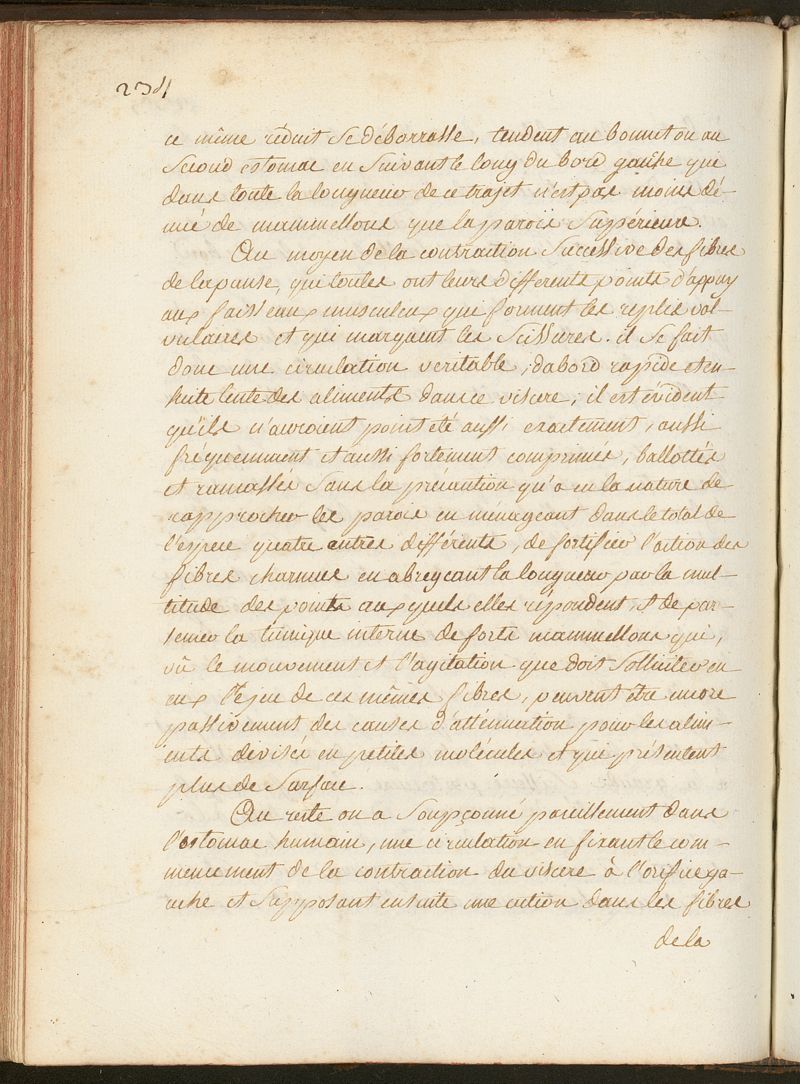 234
ce même réduit se déborrasse, tendent au bonnet ou au
second estomac en suivant le long du bord gauche que
dans toute la longueur de ce trajet n'est pas moins dé-
nué de mammellons que la parois Supérieure.
Au moyen de la contraction Successive des fibres
de la panse, qui toutes ont leurs differents points d'appuy
aux faisseaux musculeux que forment les replis val-
vulaires et qui marquent les Scissures. il se fait
donc une circulation veritable, d'abord rapide et en-
suite lente des aliments dans ce viscere; il est évident
qu'ils n'auroient point été aussi exactement, aussi
fréquemment et aussi fortement comprimés, ballottés
et ramassés sans la précaution qu'a eu la nature de
rapprocher les parois en menageant dans le total de
l'espece quatre antres différents, de fortifier l'action des
fibres charnues en abregeant la longueur par la mul-
titude des points auxquels elles répondent, et de par-
semer la tunique interne de forts mammellons qui,
vû le mouvement et l'agitation que doit Solliciter en
eux le jeu de ces mêmes fibres, peuvent être encore
passivement des causes d'atténuation pour les alim-
ents divisés en petites molécules et qui présentent
plus de Surface.
Au reste on a Soupçonné pareillement dans
l'estomac humain, une circulation en fixant le com-
mencement de la contraction du viscere à l'orifice ga-
uche et Supposant ensuite une action dans les fibres
de la